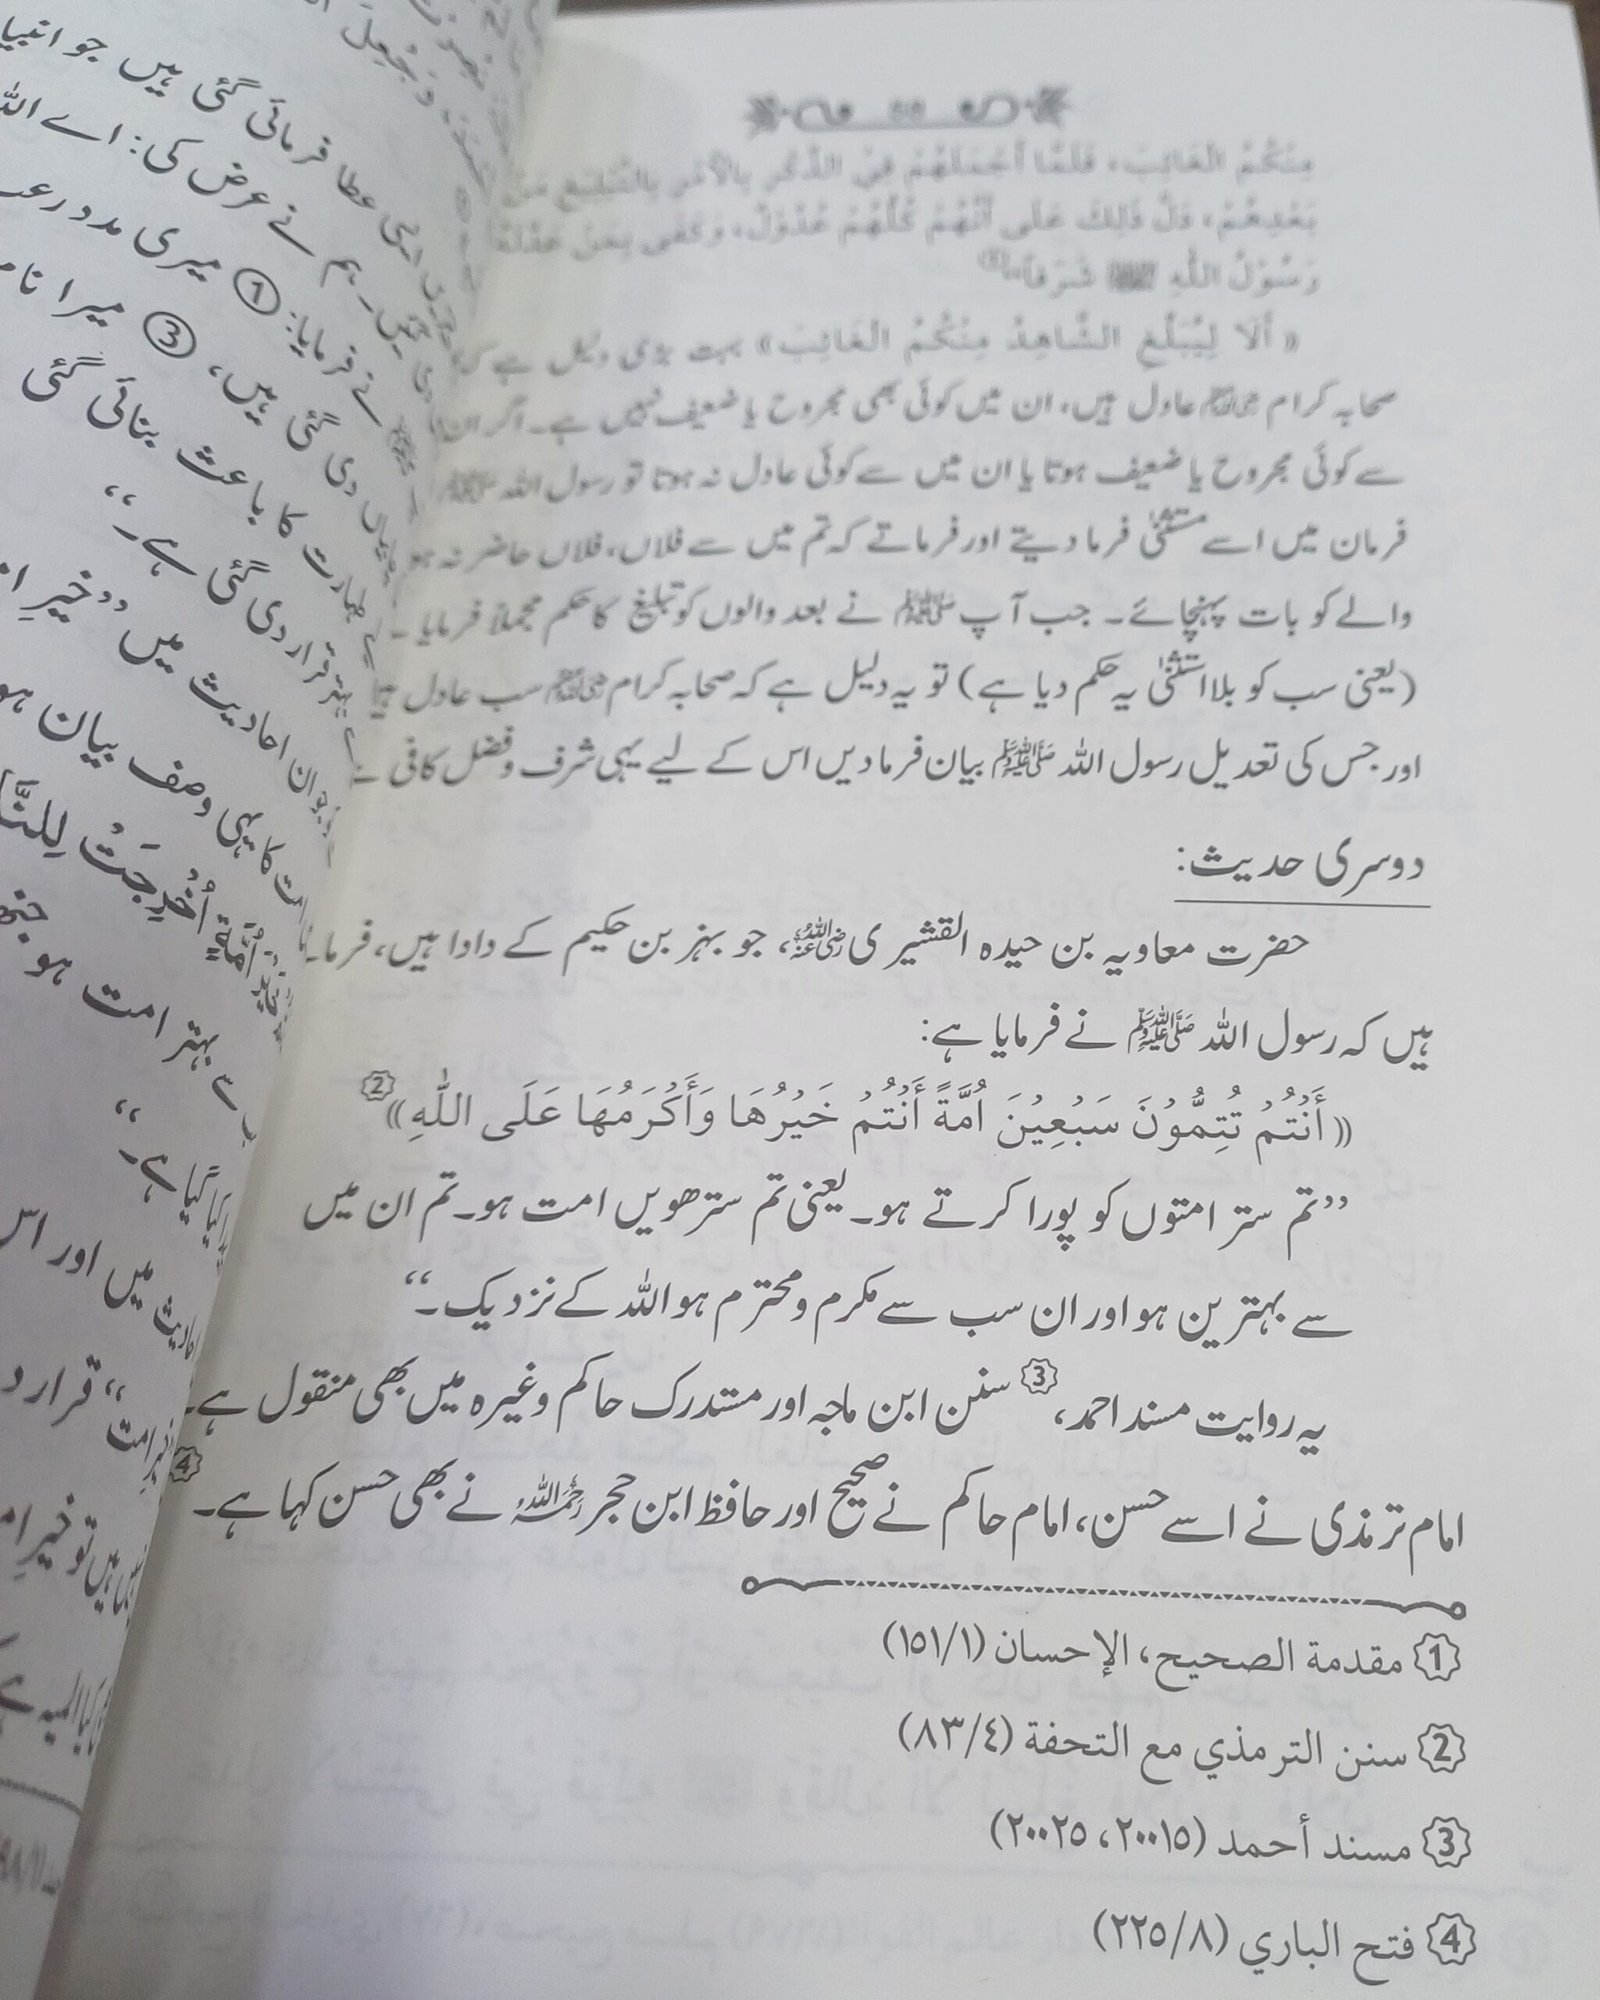 مِنْكُمُ الْغَائِبَ، فَلَمَّا أَجْمَلَهُمْ فِي الذِّكْرِ بِالْأَمْرِ بِالتَّبْلِيْغِ مَنْ
بَعْدَهُمْ، دَلَّ ذٰلِكَ عَلٰى أَنَّهُمْ كُلُّهُمْ عُدُوْلٌ، وَكَفٰى بِمَنْ عَدَّلَهُ
رَسُوْلُ اللّٰهِ ﷺ شَرَفًا
« أَلَا لِيُبَلِّغِ الشَّاهِدُ مِنْكُمُ الْغَائِبَ» بہت بڑی دلیل ہے کہ
صحابہ کرام رضی اللہ عنہم عادل ہیں، ان میں کوئی بھی مجروح یا ضعیف نہیں ہے۔ اگر ان
سے کوئی مجروح یا ضعیف ہوتا یا ان میں سے کوئی عادل نہ ہوتا تو رسول اللہ ﷺ
فرمان میں اسے مستثنیٰ فرما دیتے اور فرماتے کہ تم میں سے فلاں، فلاں حاضر نہ ہو
والے کو بات پہنچائے۔ جب آپ ﷺ نے بعد والوں کو تبلیغ کا حکم مجملاً فرمایا
(یعنی سب کو بلا استثنیٰ یہ حکم دیا ہے) تو یہ دلیل ہے کہ صحابہ کرام رضی اللہ عنہم سب عادل ہیں
اور جس کی تعدیل رسول اللہ ﷺ بیان فرما دیں اس کے لیے یہی شرف و فضل کافی
دوسری حدیث:
حضرت معاویہ بن حیدہ القشیری رضی اللہ عنہ، جو بہز بن حکیم کے دادا ہیں، فرما
ہیں کہ رسول اللہ ﷺ نے فرمایا ہے:
« أَنْتُمْ تُتِمُّوْنَ سَبْعِيْنَ أُمَّةً أَنْتُمْ خَيْرُهَا وَأَكْرَمُهَا عَلَى اللّٰهِ» 2
”تم ستر امتوں کو پورا کرتے ہو۔ یعنی تم سترھویں امت ہو۔ تم ان میں
سے بہترین ہو اور ان سب سے مکرم و محترم ہو اللہ کے نزدیک۔“
یہ روایت مسند احمد، 3 سنن ابن ماجہ اور مستدرک حاکم وغیرہ میں بھی منقول ہے۔
امام ترمذی نے اسے حسن، امام حاکم نے صحیح اور حافظ ابن حجر رحمہ اللہ نے بھی حسن کہا ہے۔ 4
1 مقدمة الصحيح، الإحسان (١٥١/١)
2 سنن الترمذي مع التحفة (٨٣/٤)
3 مسند أحمد (٢٠٠١٥، ٢٠٠٢٥)
4 فتح الباري (٢٢٥/٨)
عطا فرمائی گئی ہیں جو
ہم نے عرض کی: اے
نے فرمایا: 1 میری مدد
دی گئی ہیں، 3 میرا
طہارت کا باعث بنائی گئی
بہتر قرار دی گئی ہے۔“
ان احادیث میں ”خیر
کا یہی وصف بیان
أُمَّةٍ أُخْرِجَتْ
بہتر امت ہو
کیا گیا ہے۔“
میں اور اس
“ قرار
ہیں تو خیر